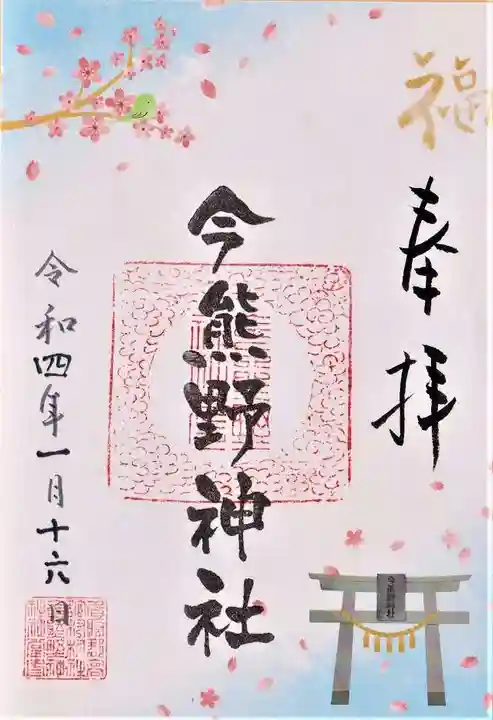 福
奉拝
今熊野神社
令和四年一月十六日
今熊野神社